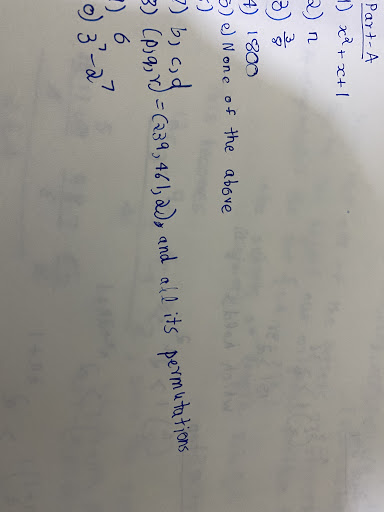 Part-A
1) x² + x + 1
2) n
3) 3/8
4) 1800
5) e) None of the above
7) b, c, d
8) (p, q, r) = (239, 461, 2), and all its permutations
9) 6
10) 3⁷ - 2⁷